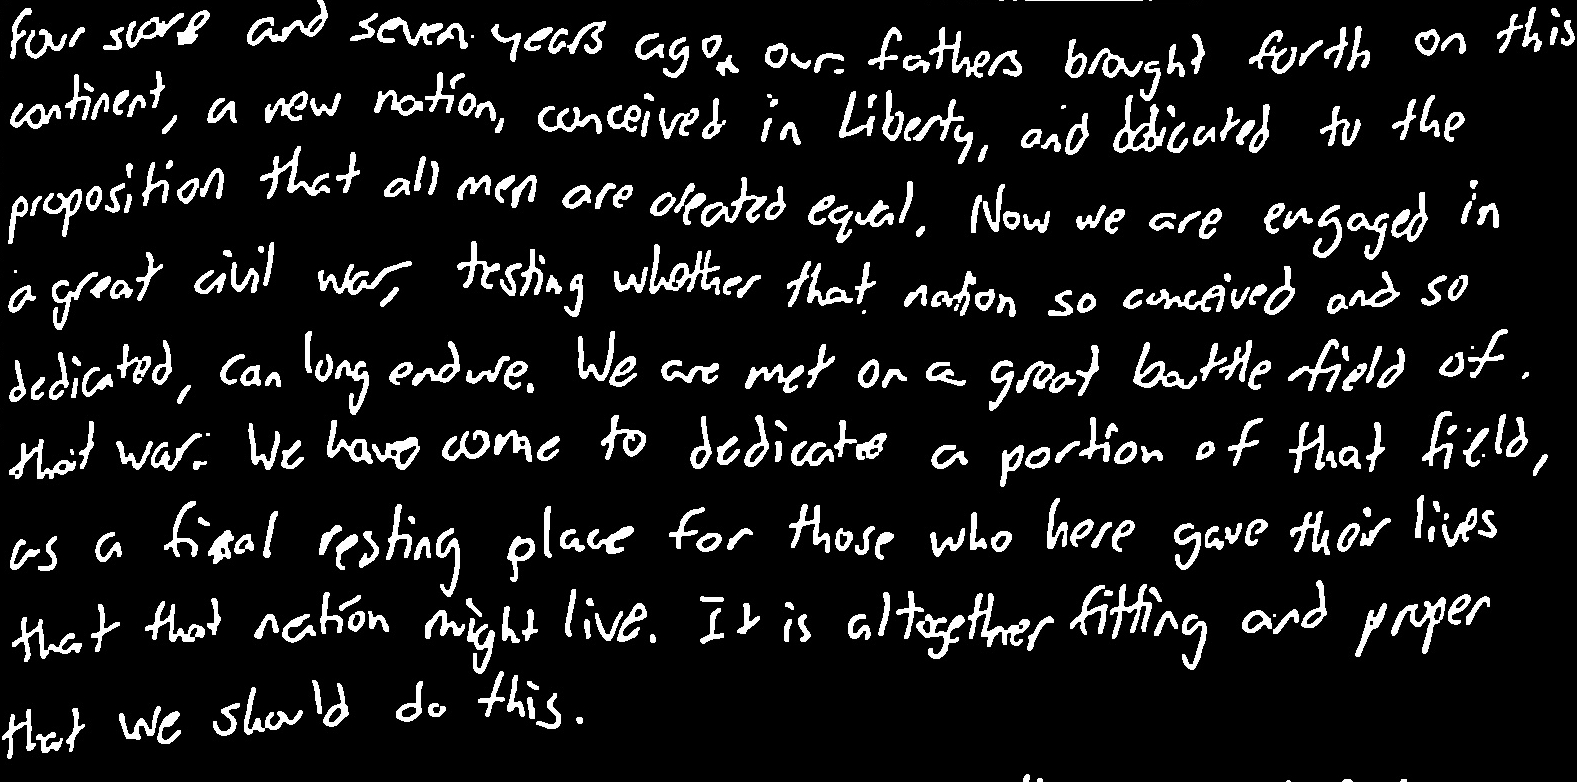 Four score and seven years ago our fathers brought forth on this
continent, a new nation, conceived in Liberty, and dedicated to the
proposition that all men are created equal. Now we are engaged in
a great civil war, testing whether that nation so conceived and so
dedicated, can long endure. We are met on a great battle field of
that war. We have come to dedicate a portion of that field,
as a final resting place for those who here gave their lives
that that nation might live. It is altogether fitting and proper
that we should do this.